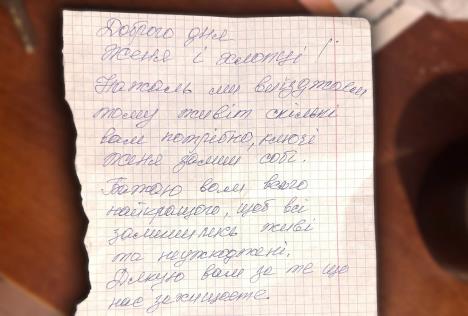 Доброго дня
Женя і хлопці!
Нажаль ми виїзджаєм
тому живіт скільки
вам потрібно, ключі
Женя залиш собі.
Бажаю вам всього
найкращого, щоб всі
залишились живі
та неужкоджені.
Дякую вам за те що
нас захищаєте.